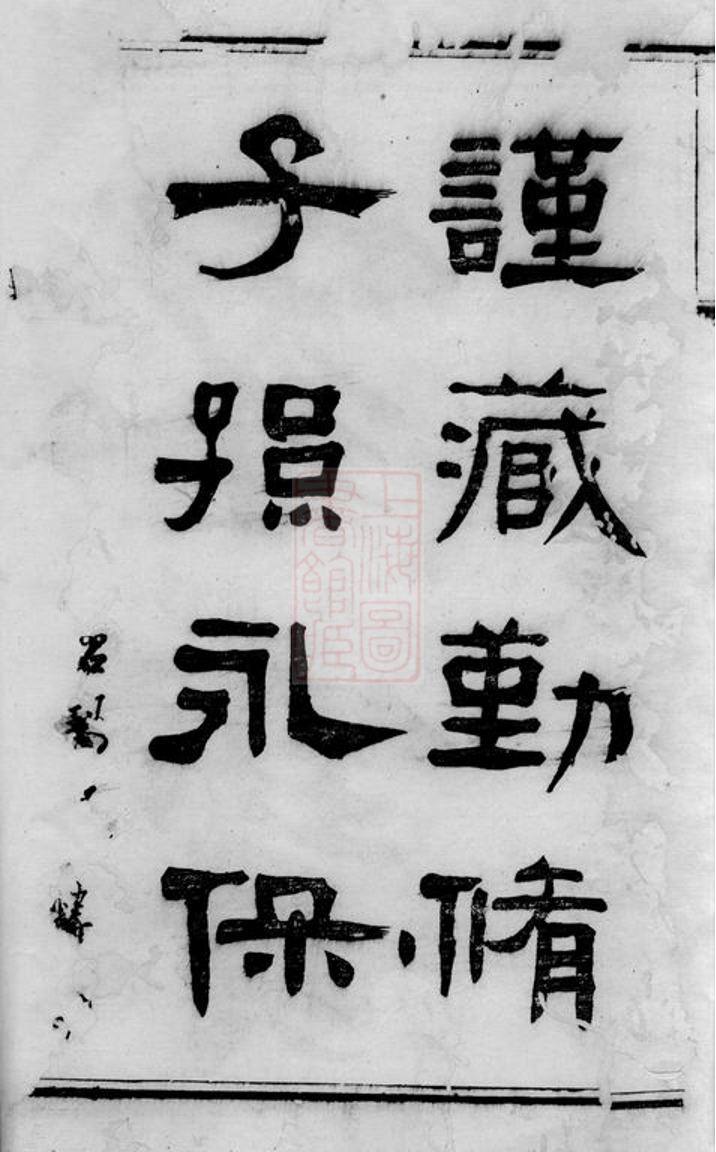 謹藏勤脩
子孫永保
上海圖
書館藏